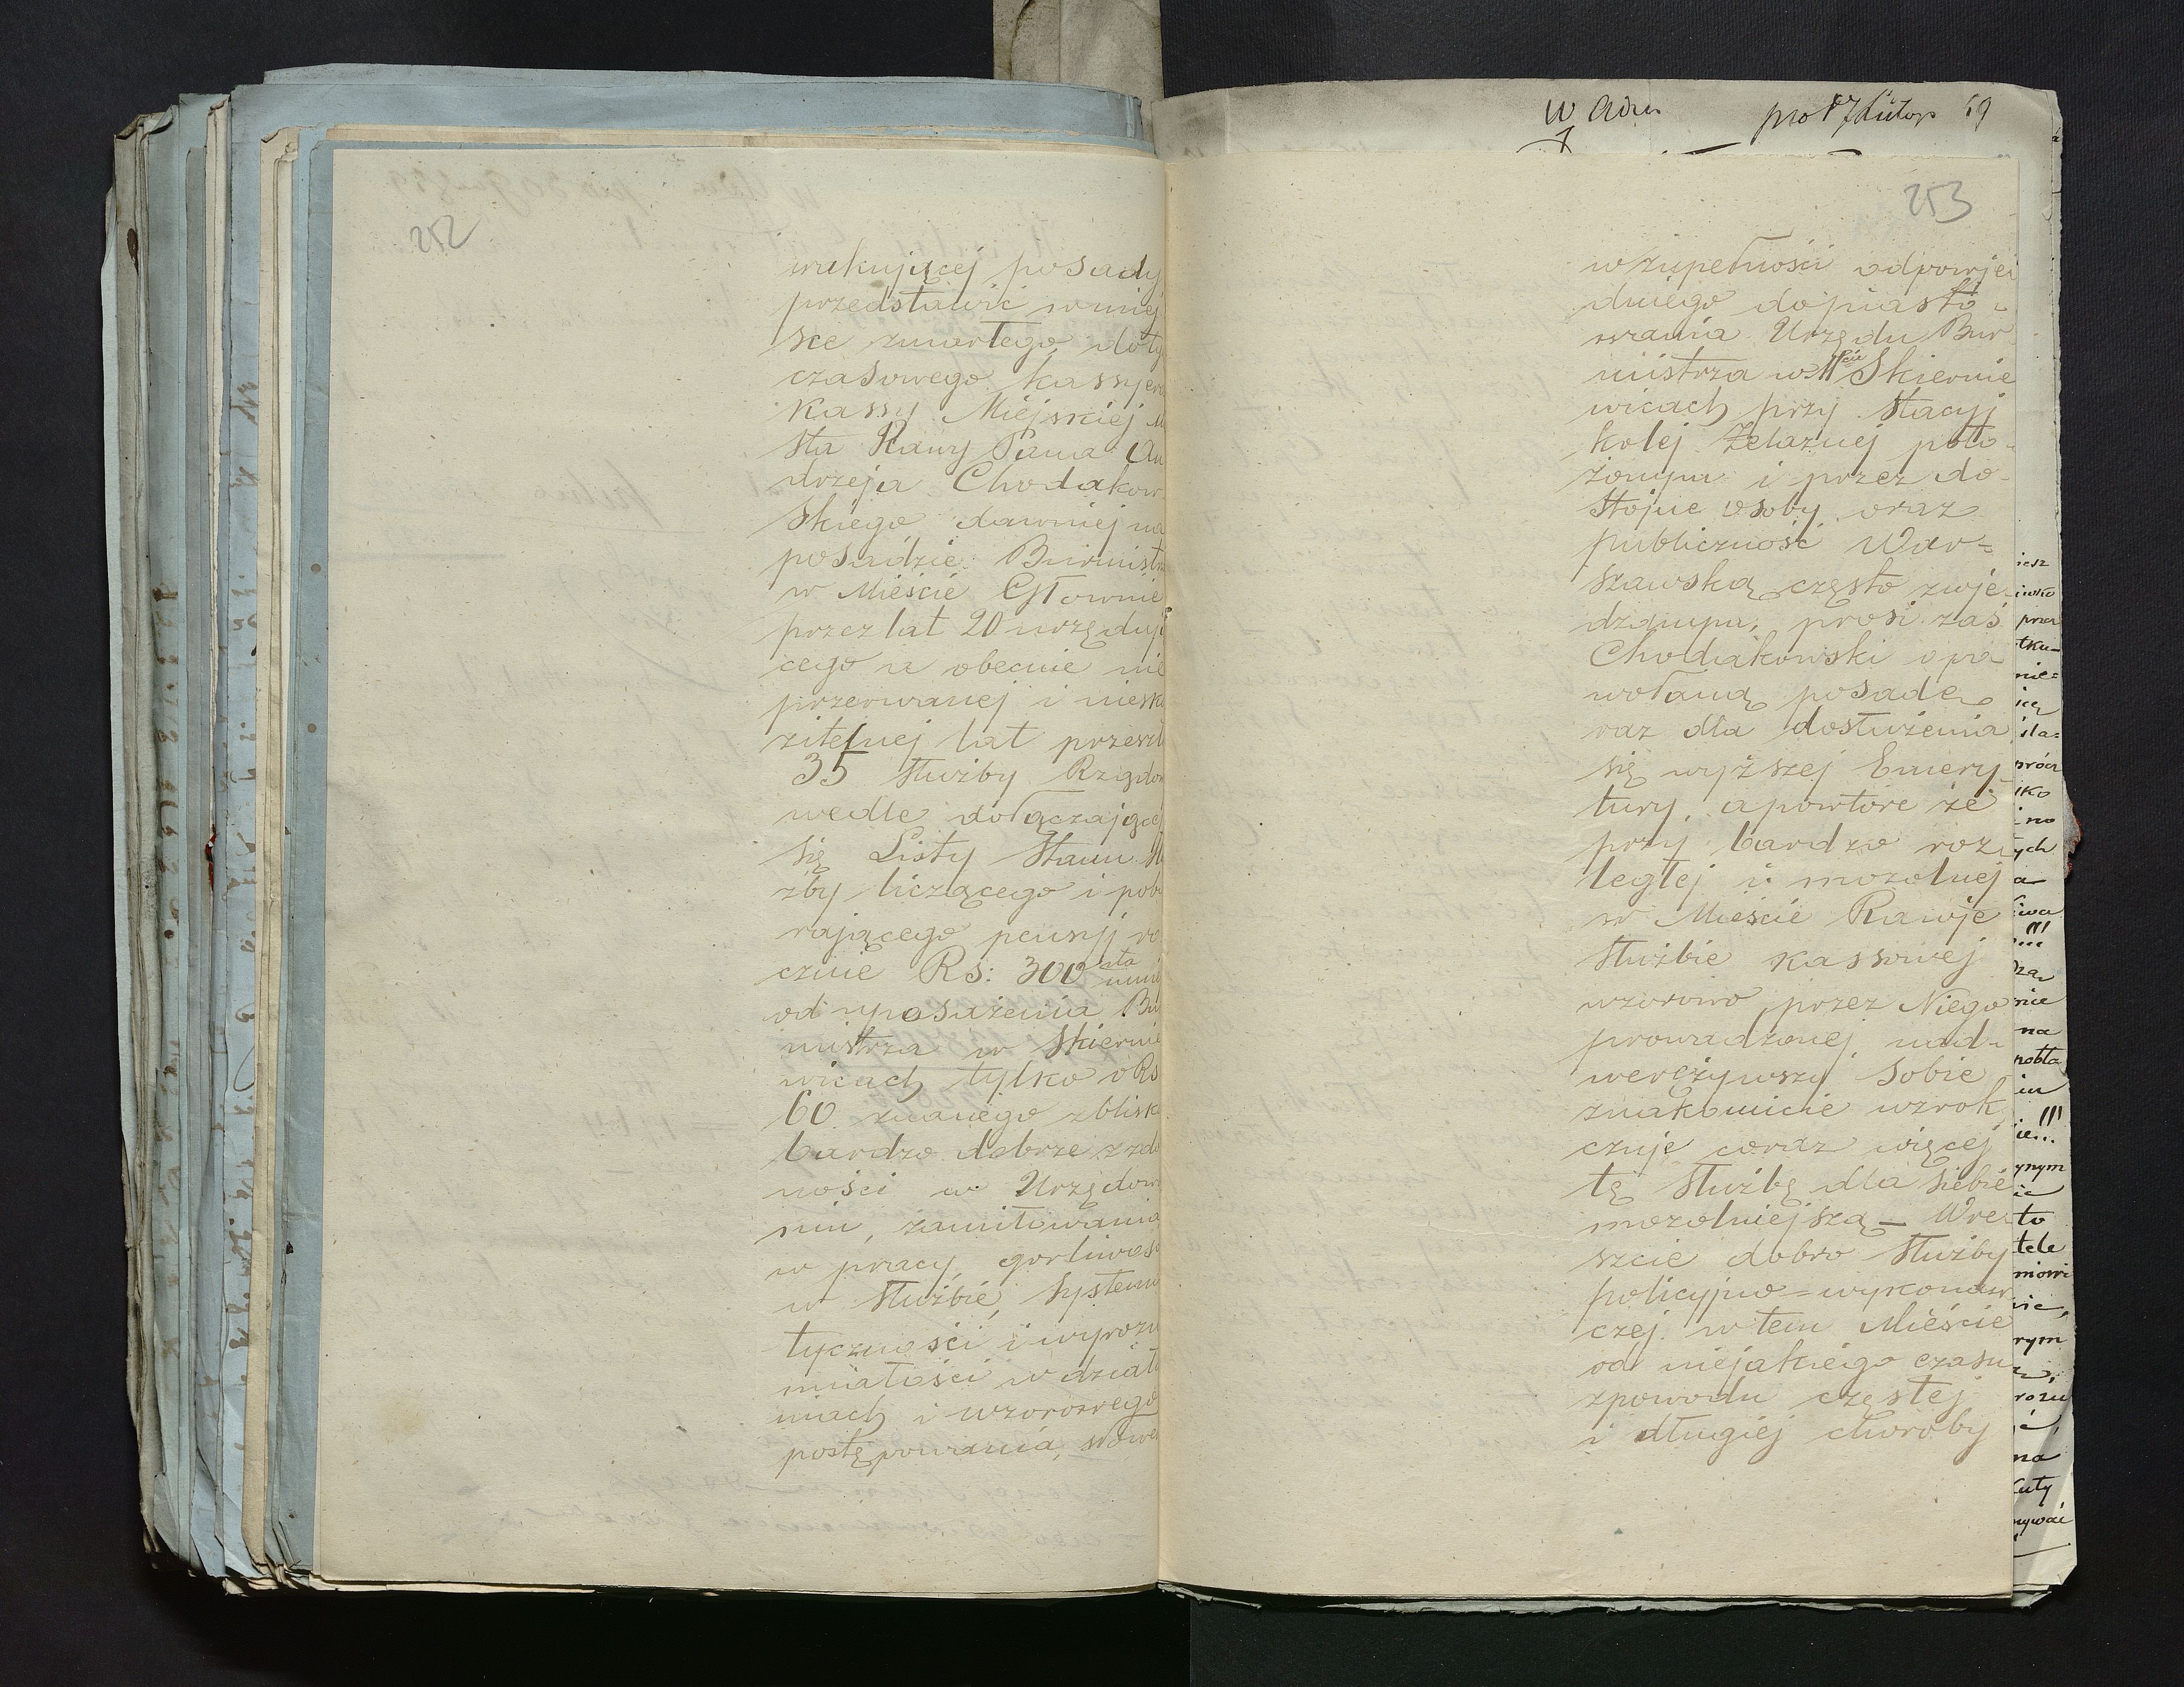 252
wakującej posady
przedstawić w miej
sce zmarłego doty
czasowego kassyera
Kassy Miejskiej M
sta Rawy Pana An
drzeja Chodakow
skiego dawniej na
posadzie Burmistrz
w Mieście Głownie
przez lat 20 urzędują
cego a obecnie nie
przerwanej i nieska
zitelnej lat przeszło
35 służby Rządow
wedle dołączającej
się Listy Stanu Słu
żby liczącego i pobie
rającego pensyj ro
cznie Rs: 300 mni
od uposażenia Bur
mistrza w Skiernie
wicach tylko o Rs
60. znanego z blisk
bardzo dobrze z zdol
ności w Urzędowa
niu, zamiłowania
w pracy, gorliwość
w Służbie, Systema
tyczności i wyrozu
miałości w działa
niach i wzorowego
postępowania, słowe
w Aden prod 7 Lutego 69
253
w zupełności odpowied
dniego do piasto-
wania Urzędu Bur
mistrza w Mście Skiernie
wicach przy Stacyj
kolej Żelaznej poło-
żonym i przez do-
stojne osoby oraz
publiczność War=
szawską często zwie-
dzanym, prosi zaś
Chodakowski o po
wołaną posadę
raz dla dosłużenia
się wyższej Emery-
tury, a powtóre że
przy bardzo roz-
ległej i mozolnej
w Mieście Rawie
Służbie kassowej
wzorowo przez Niego
prowadzonej, nad-
werężywszy sobie
znakomicie wzrok
czuje coraz więcej
tę Służbę dla siebie
mozolniejszą – Wre-
szcie dobro Służby
policyjno=wykonaw
czej w tem Mieście
od niejakiego czasu
z powodu częstej
i długiej choroby
iwko
prze
tku-
nie=
ila=
próc
iko
no
ych
a
!!!
nie
na
!!!
ynym
to
tele
rym
na